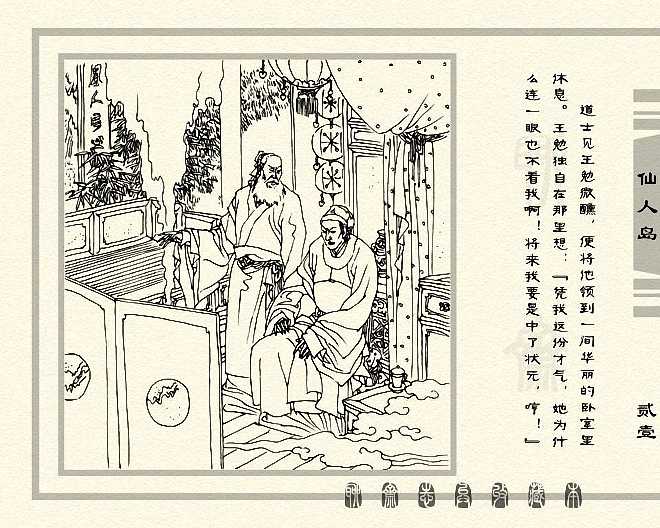 道士见王勉微醺，便将他领到一间华丽的卧室里
休息。王勉独自在那里想：『凭我这份才气，她为什
么连一眼也不看我啊！将来我要是中了状元，哼！』
仙人岛
贰壹